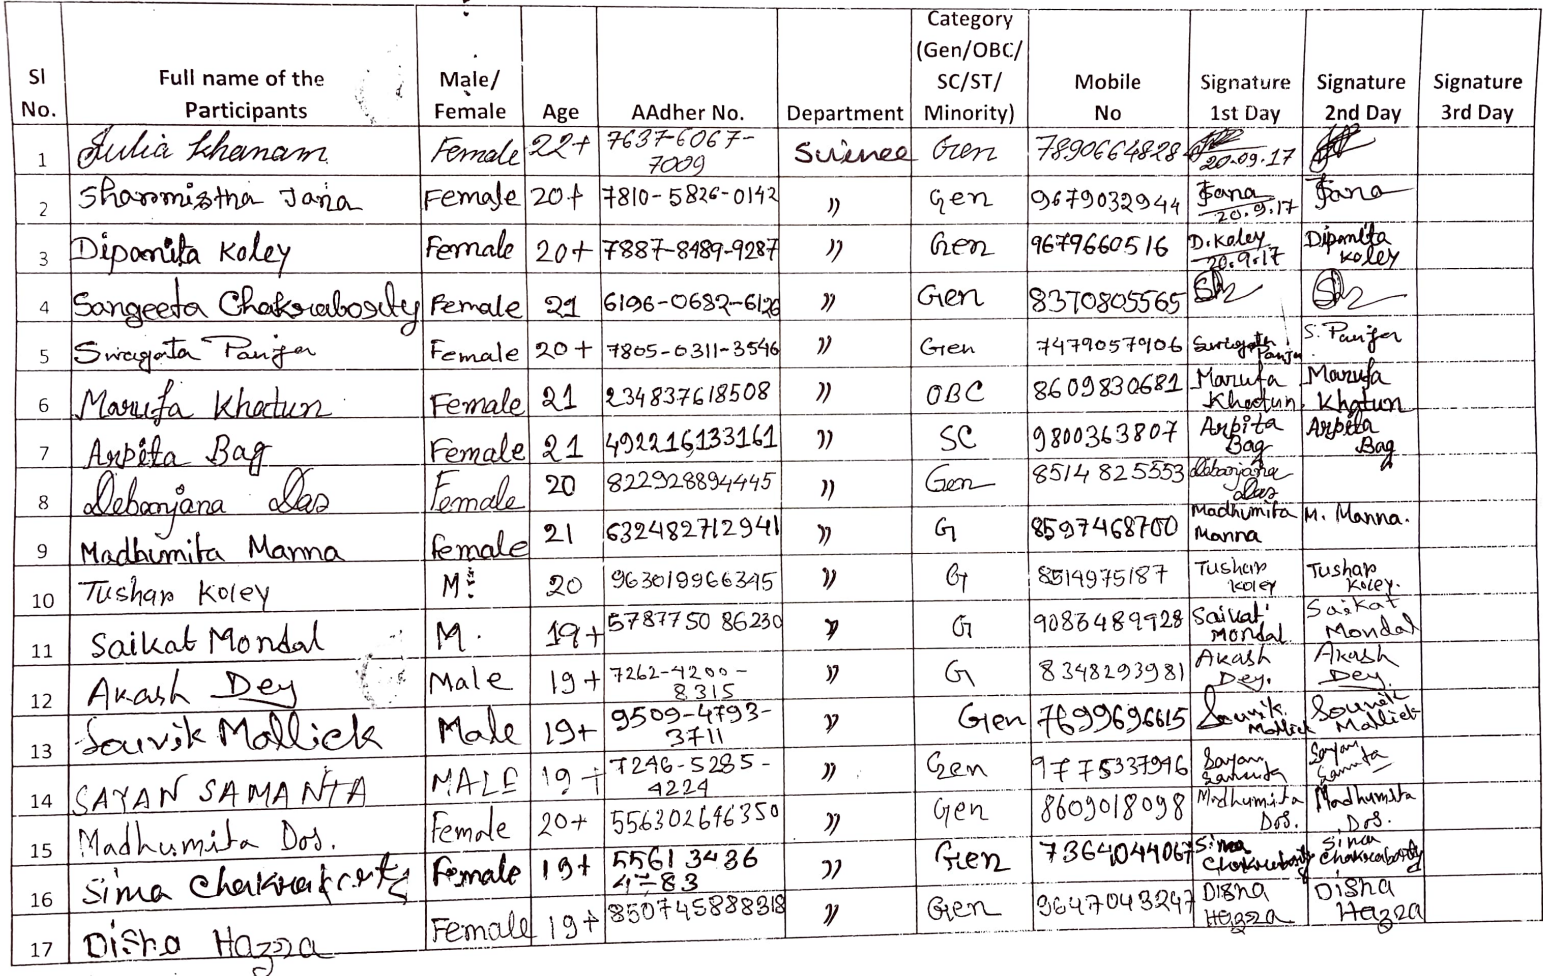 Sl No. Full name of the Participants Male/ Female Age AAdher No. Department Category (Gen/OBC/ SC/ST/ Minority) Mobile No Signature 1st Day Signature 2nd Day Signature 3rd Day
1 Julia Khanam Female 22+ 7637-6067-7009 Science Gen 7890664828 20.09.17
2 Sharmistha Jana Female 20+ 7810-5826-0142 " Gen 9679032944 Jana 20.9.17 Jana
3 Dipanita Koley Female 20+ 7887-8489-9287 " Gen 9679660516 D. Koley 20.9.17 Dipanita Koley
4 Sangeeta Chakraborty Female 21 6196-0682-6126 " Gen 8370805565
5 Swagata Panja Female 20+ 7805-0311-3546 " Gen 7479057906 Swagata Panja S. Panja
6 Marufa Khatun Female 21 234837618508 " OBC 8609830681 Marufa Khatun Marufa Khatun
7 Arpita Bag Female 21 492216133161 " SC 9800363807 Arpita Bag Arpita Bag
8 Debanjana Das Female 20 822928894445 " Gen 8514 825553 Debanjana Das
9 Madhumita Manna Female 21 632482712941 " G 8597468700 Madhumita Manna M. Manna.
10 Tushar Koley M. 20 963019966345 " G 8514975187 Tushar Koley Tushar Koley.
11 Saikat Mondal M. 19+ 5787750 86230 " G 9083489928 Saikat Mondal Saikat Mondal
12 Akash Dey Male 19+ 7262-4200-8315 " G 8348293981 Akash Dey. Akash Dey.
13 Souvik Mallick Male 19+ 9509-4793-3711 " Gen 7699696615 Souvik Mallick Souvik Mallick
14 SAYAN SAMANTA MALE 19+ 7246-5285-4224 " Gen 9775337946 Sayan Samanta Sayan Samanta
15 Madhumita Das. Female 20+ 556302646350 " Gen 8609018098 Madhumita Das. Madhumita Das.
16 Sima Chakraborty Female 19+ 5561 3486 " Gen 7364044067 Sima Chakraborty Sima Chakraborty
17 Disha Hazra Female 19+ 850745888318 " Gen 9647043247 Disha Hazra Disha Hazra